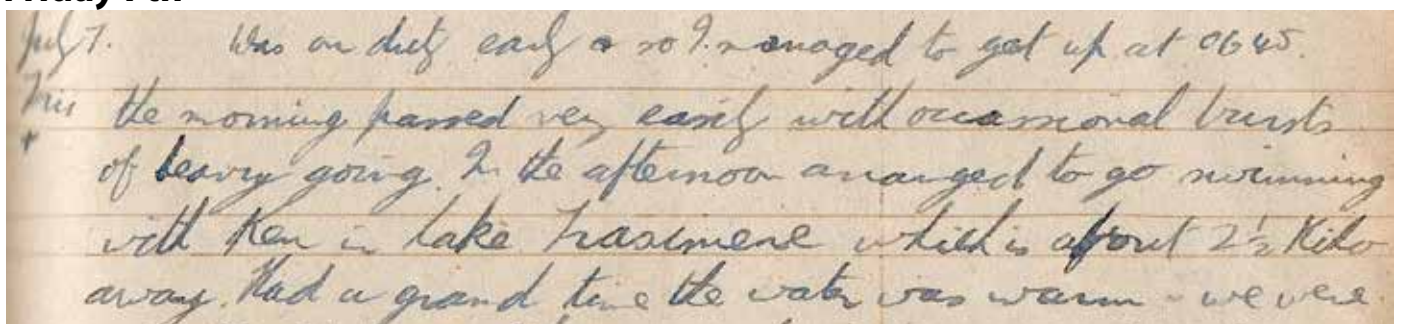 July 7. Was on duty early & so I managed to get up at 0645.
Fri the morning passed very easily with occassional bursts
+ of heavy going. In the afternoon arranged to go swimming
with Ken in Lake Trasimene which is about 2½ Kilo
away. Had a grand time the water was warm - we were